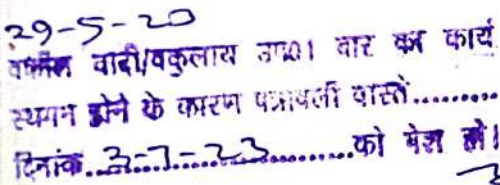 29-5-20
वकील वादी/वकुलाय उप0। बार का कार्य
स्थगन होने के कारण पत्रावली वास्ते.........
दिनांक..3-7-23..को पेश हो।